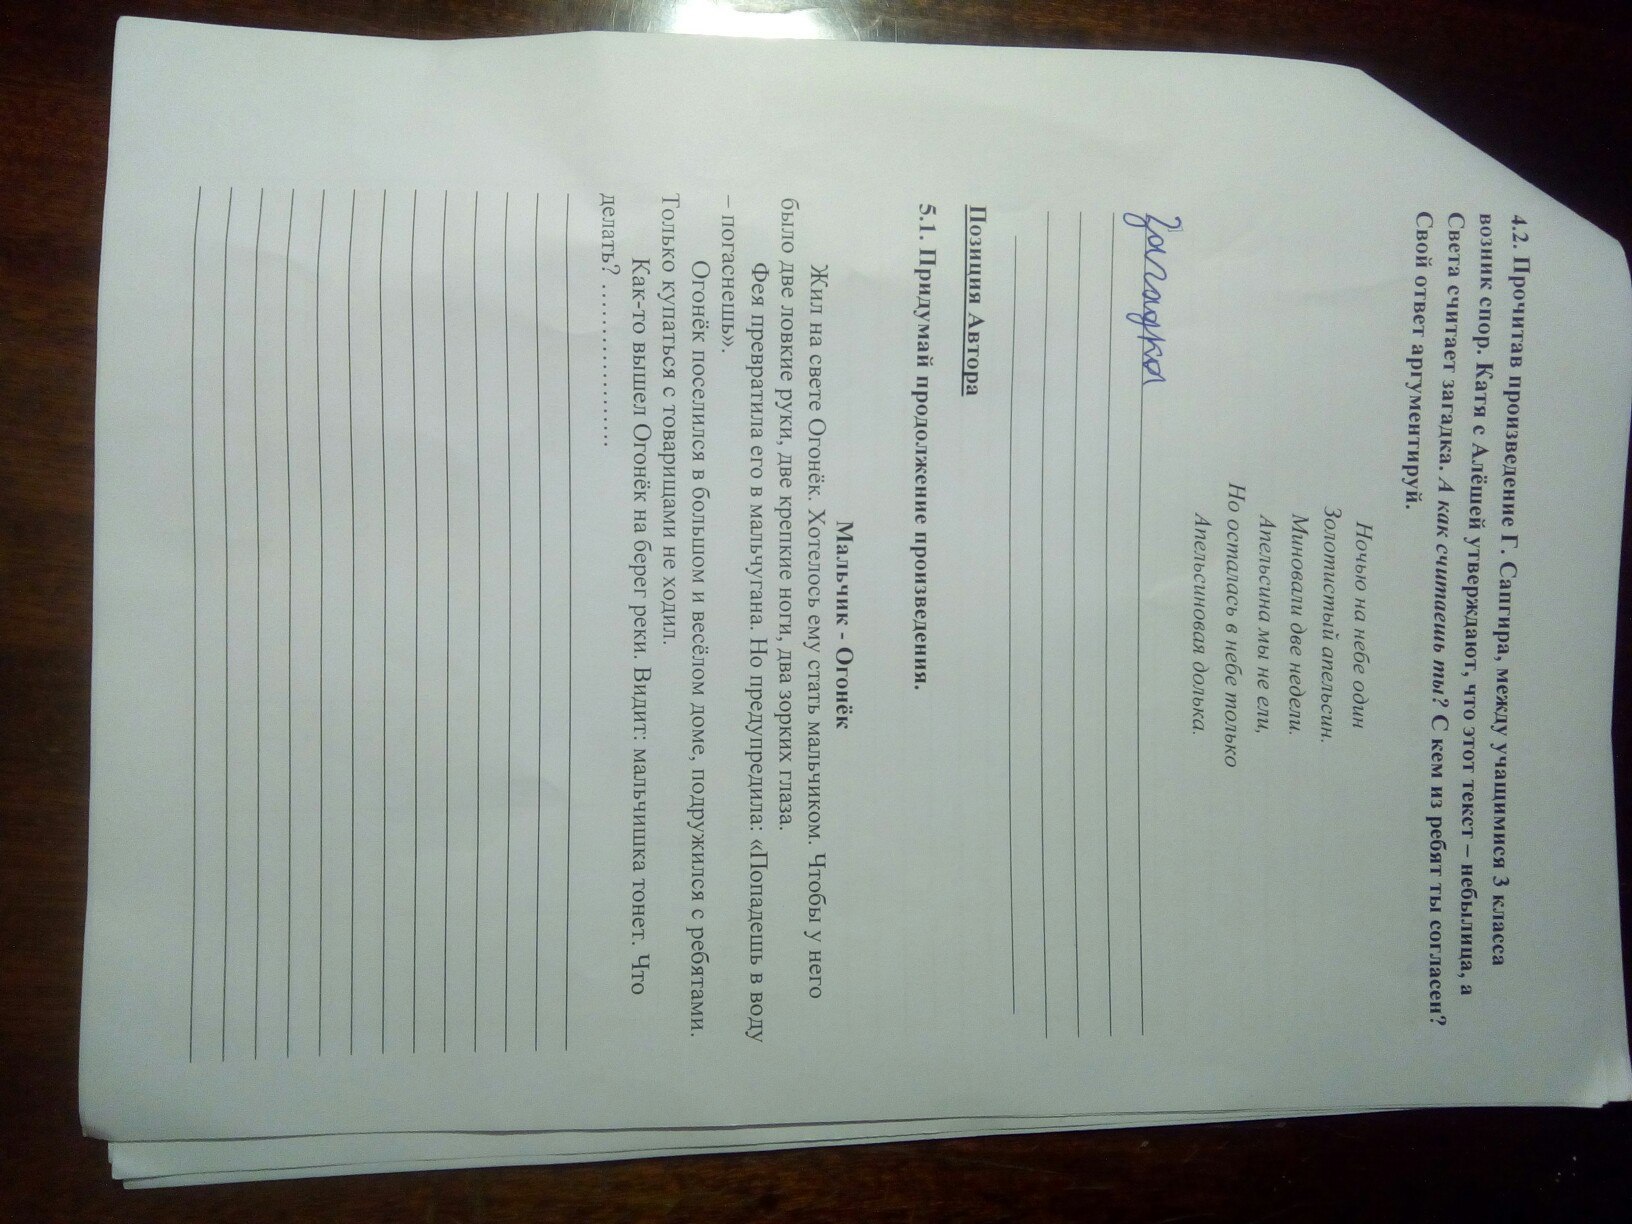 4.2. Прочитав произведение Г. Сапгира, между учащимися 3 класса
возник спор. Катя с Алёшей утверждают, что этот текст – небылица, а
Света считает загадка. А как считаешь ты? С кем из ребят ты согласен?
Свой ответ аргументируй.
Ночью на небе один
Золотистый апельсин.
Миновали две недели.
Апельсина мы не ели,
Но осталась в небе только
Апельсиновая долька.
Загадка
Позиция Автора
5.1. Придумай продолжение произведения.
Мальчик - Огонёк
Жил на свете Огонёк. Хотелось ему стать мальчиком. Чтобы у него
было две ловкие руки, две крепкие ноги, два зорких глаза.
Фея превратила его в мальчугана. Но предупредила: «Попадешь в воду
– погаснешь».
Огонёк поселился в большом и весёлом доме, подружился с ребятами.
Только купаться с товарищами не ходил.
Как-то вышел Огонёк на берег реки. Видит: мальчишка тонет. Что
делать? ………………….